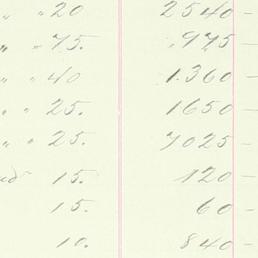 " " 20 2540 -
" " 75. .975 -
" " 40 1.360 -
" " 25. 1650 -
" " 25. 7025 -
15. 120 -
15. 60 -
10. 840 -